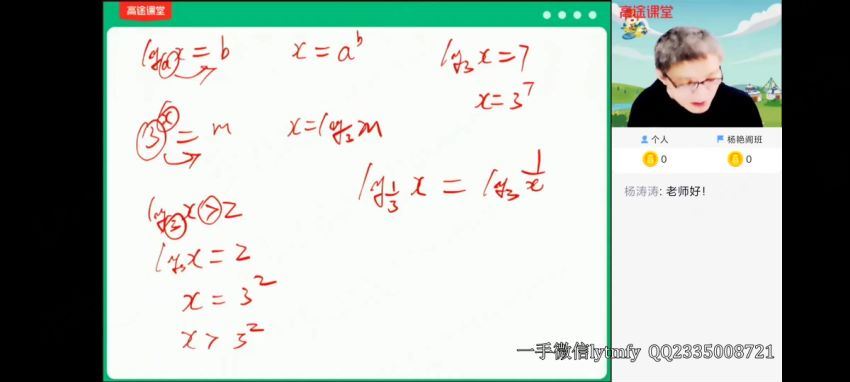 高途课堂
logₐx = b
x = aᵇ
log₃x = 7
x = 3⁷
3ˣ = m
x = log₃m
log_{1/3} x = log₃ 1/x
log₃x > 2
log₃x = 2
x = 3²
x > 3²
高途课堂
个人
杨艳阁班
0
0
杨涛涛: 老师好!
一手微信lytmfy QQ2335008721